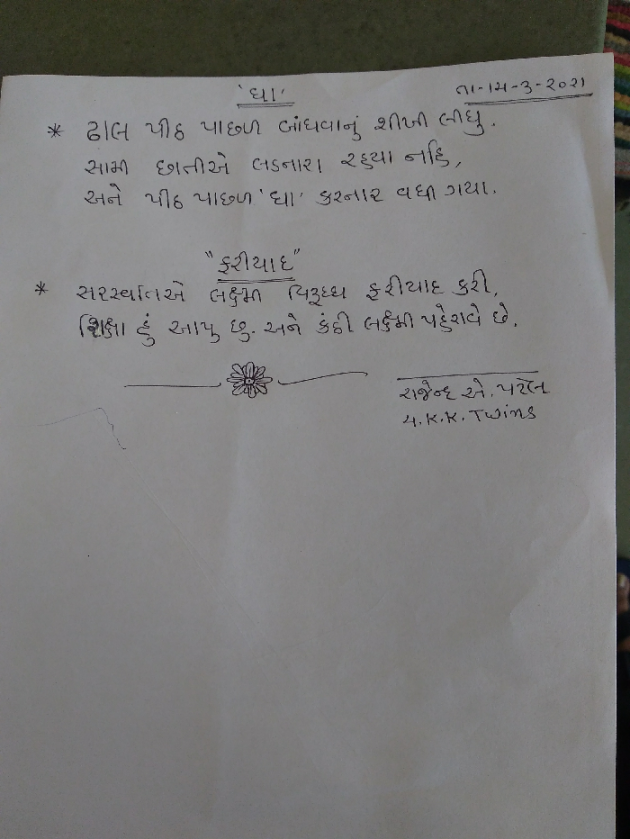 'ઘા'
તા-૧૫-૩-૨૦૨૧
* ઢાલ પીઠ પાછળ બાંધવાનું શીખી લીધુ.
સામી છાતીએ લડનારા રહયા નહિ,
અને પીઠ પાછળ 'ઘા' કરનાર વધી ગયા.
"ફરીયાદ"
* સરસ્વતિએ લક્ષ્મી વિરૂધ્ધ ફરીયાદ કરી,
શિક્ષા હું આપુ છુ. અને કંઠી લક્ષ્મી પહેરાવે છે.
રાજેન્દ્ર એ. પટેલ
K.K. Twins